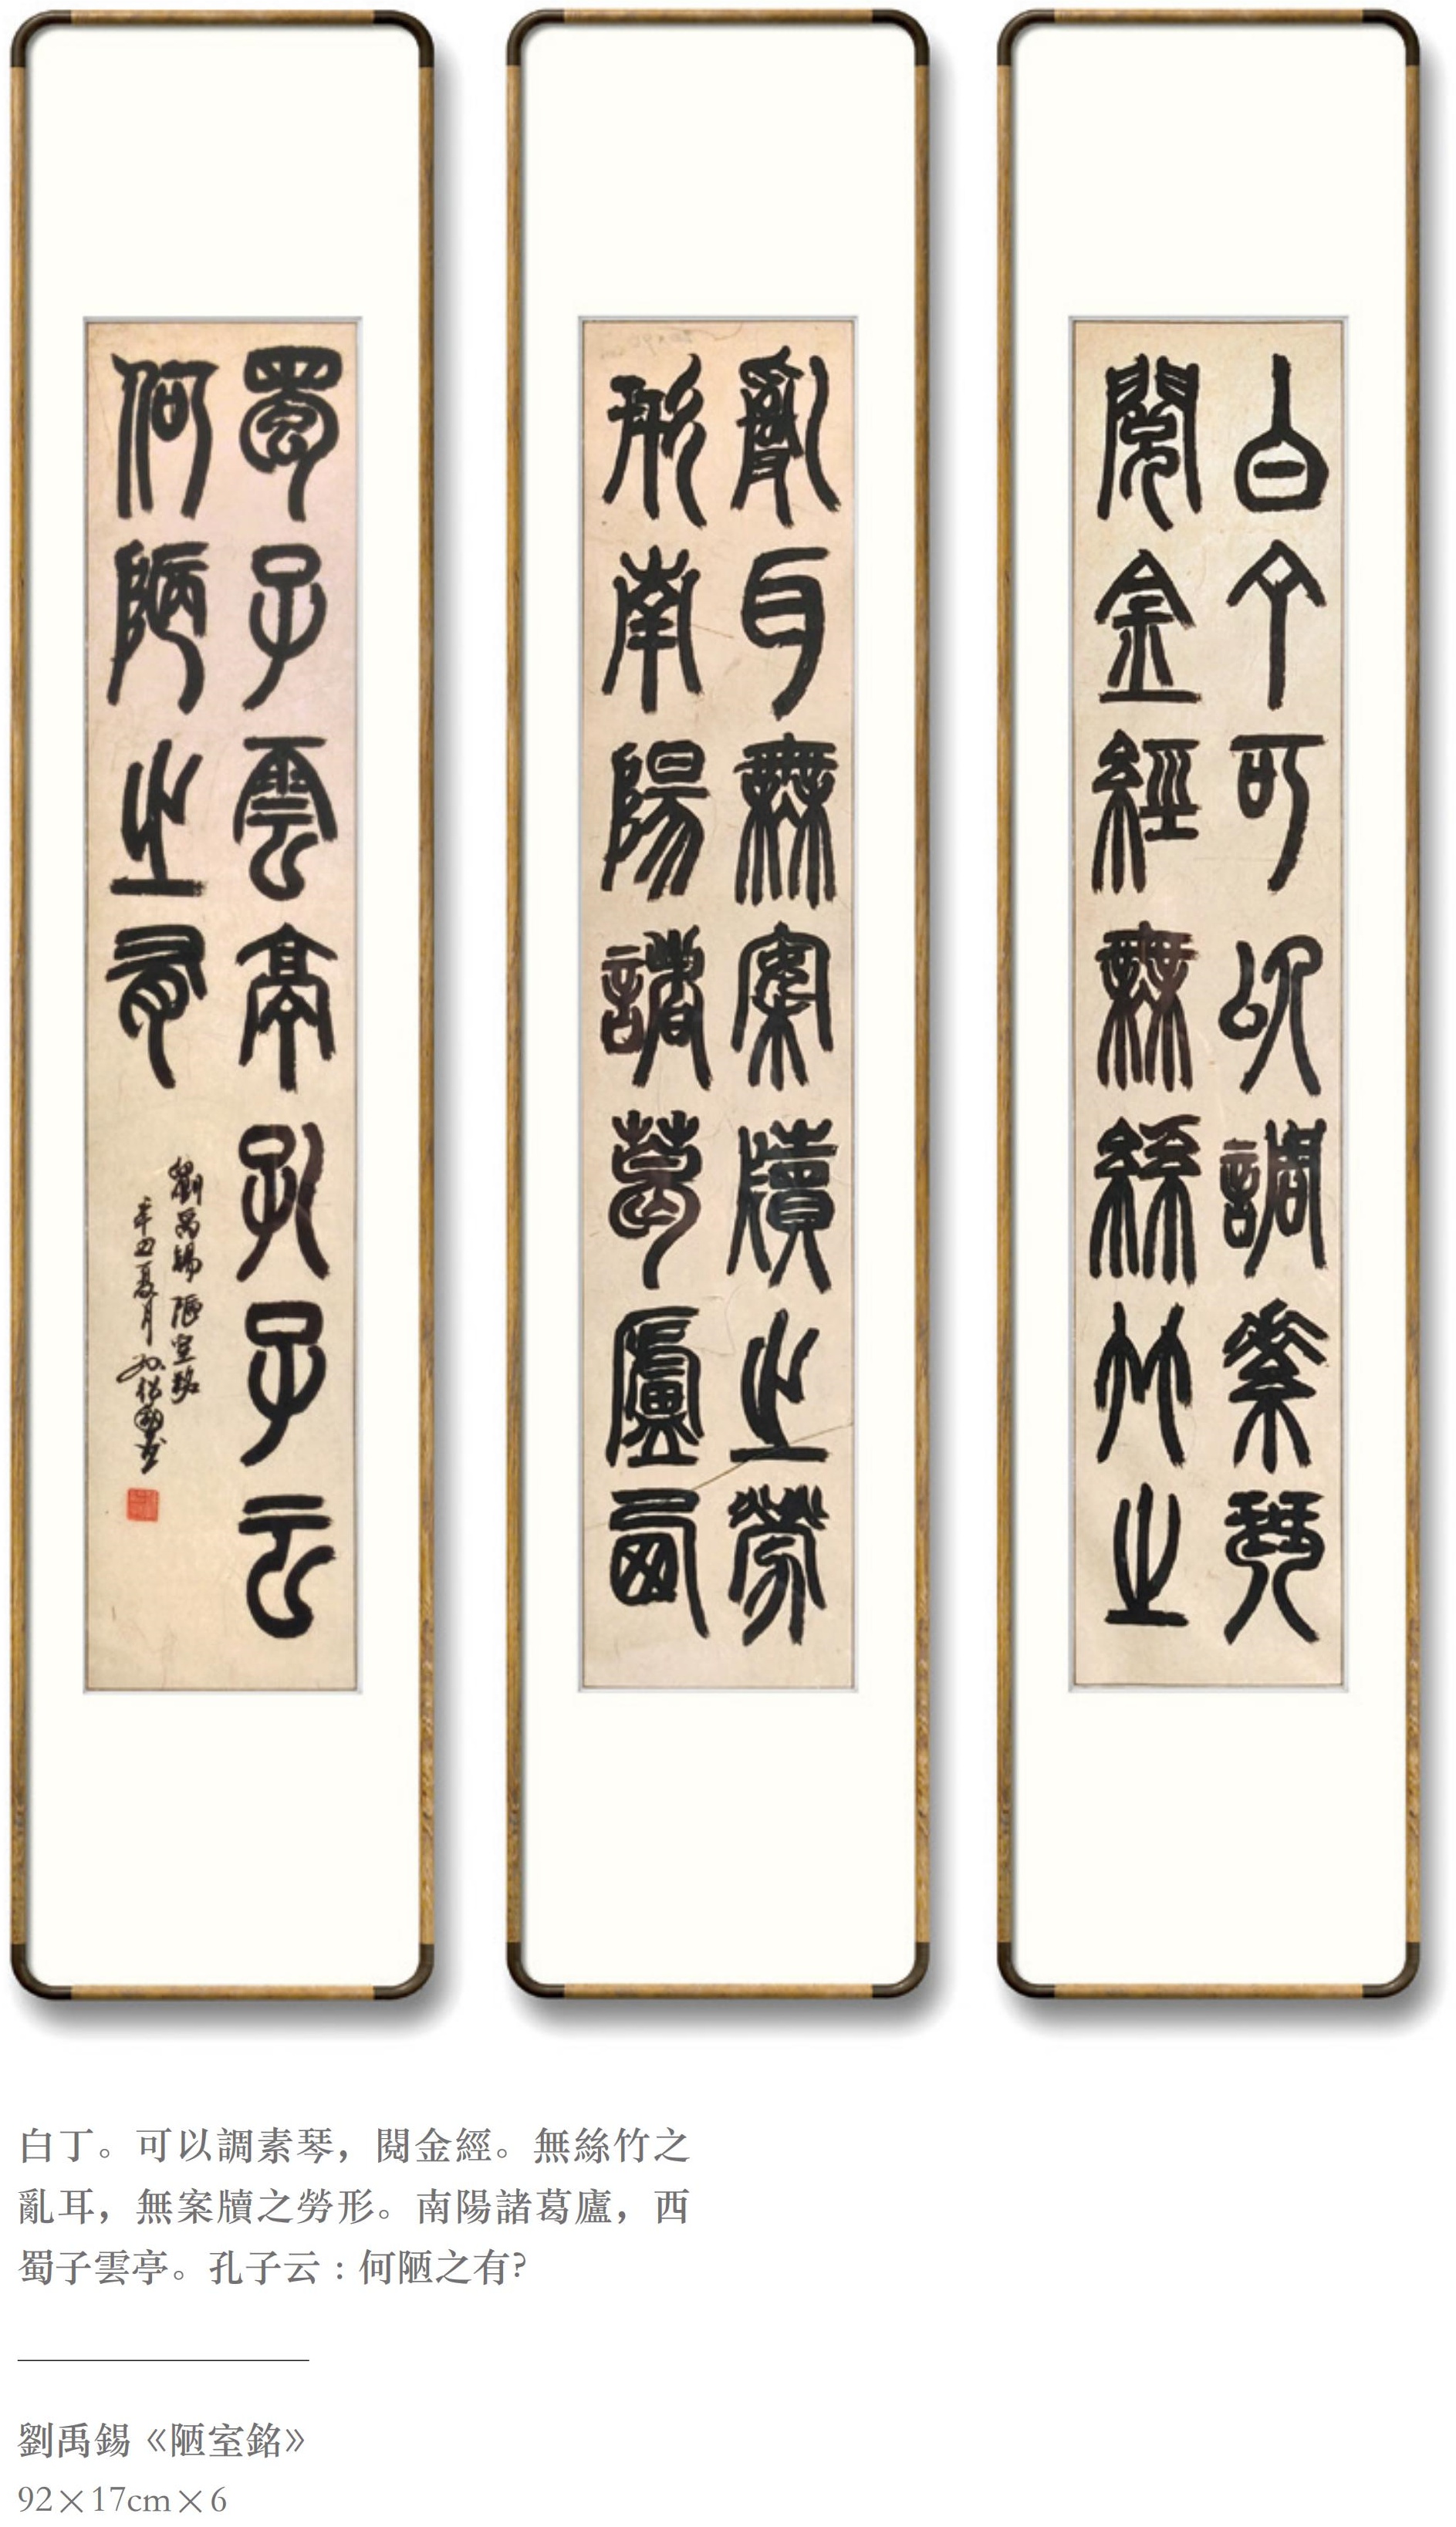 白丁可以調素琴
閱金經無絲竹之
亂耳無案牘之勞
形南陽諸葛廬西
蜀子雲亭孔子云
何陋之有
劉禹錫陋室銘
辛丑夏月
白丁。可以調素琴，閱金經。無絲竹之
亂耳，無案牘之勞形。南陽諸葛廬，西
蜀子雲亭。孔子云：何陋之有?
劉禹錫《陋室銘》
92×17cm×6